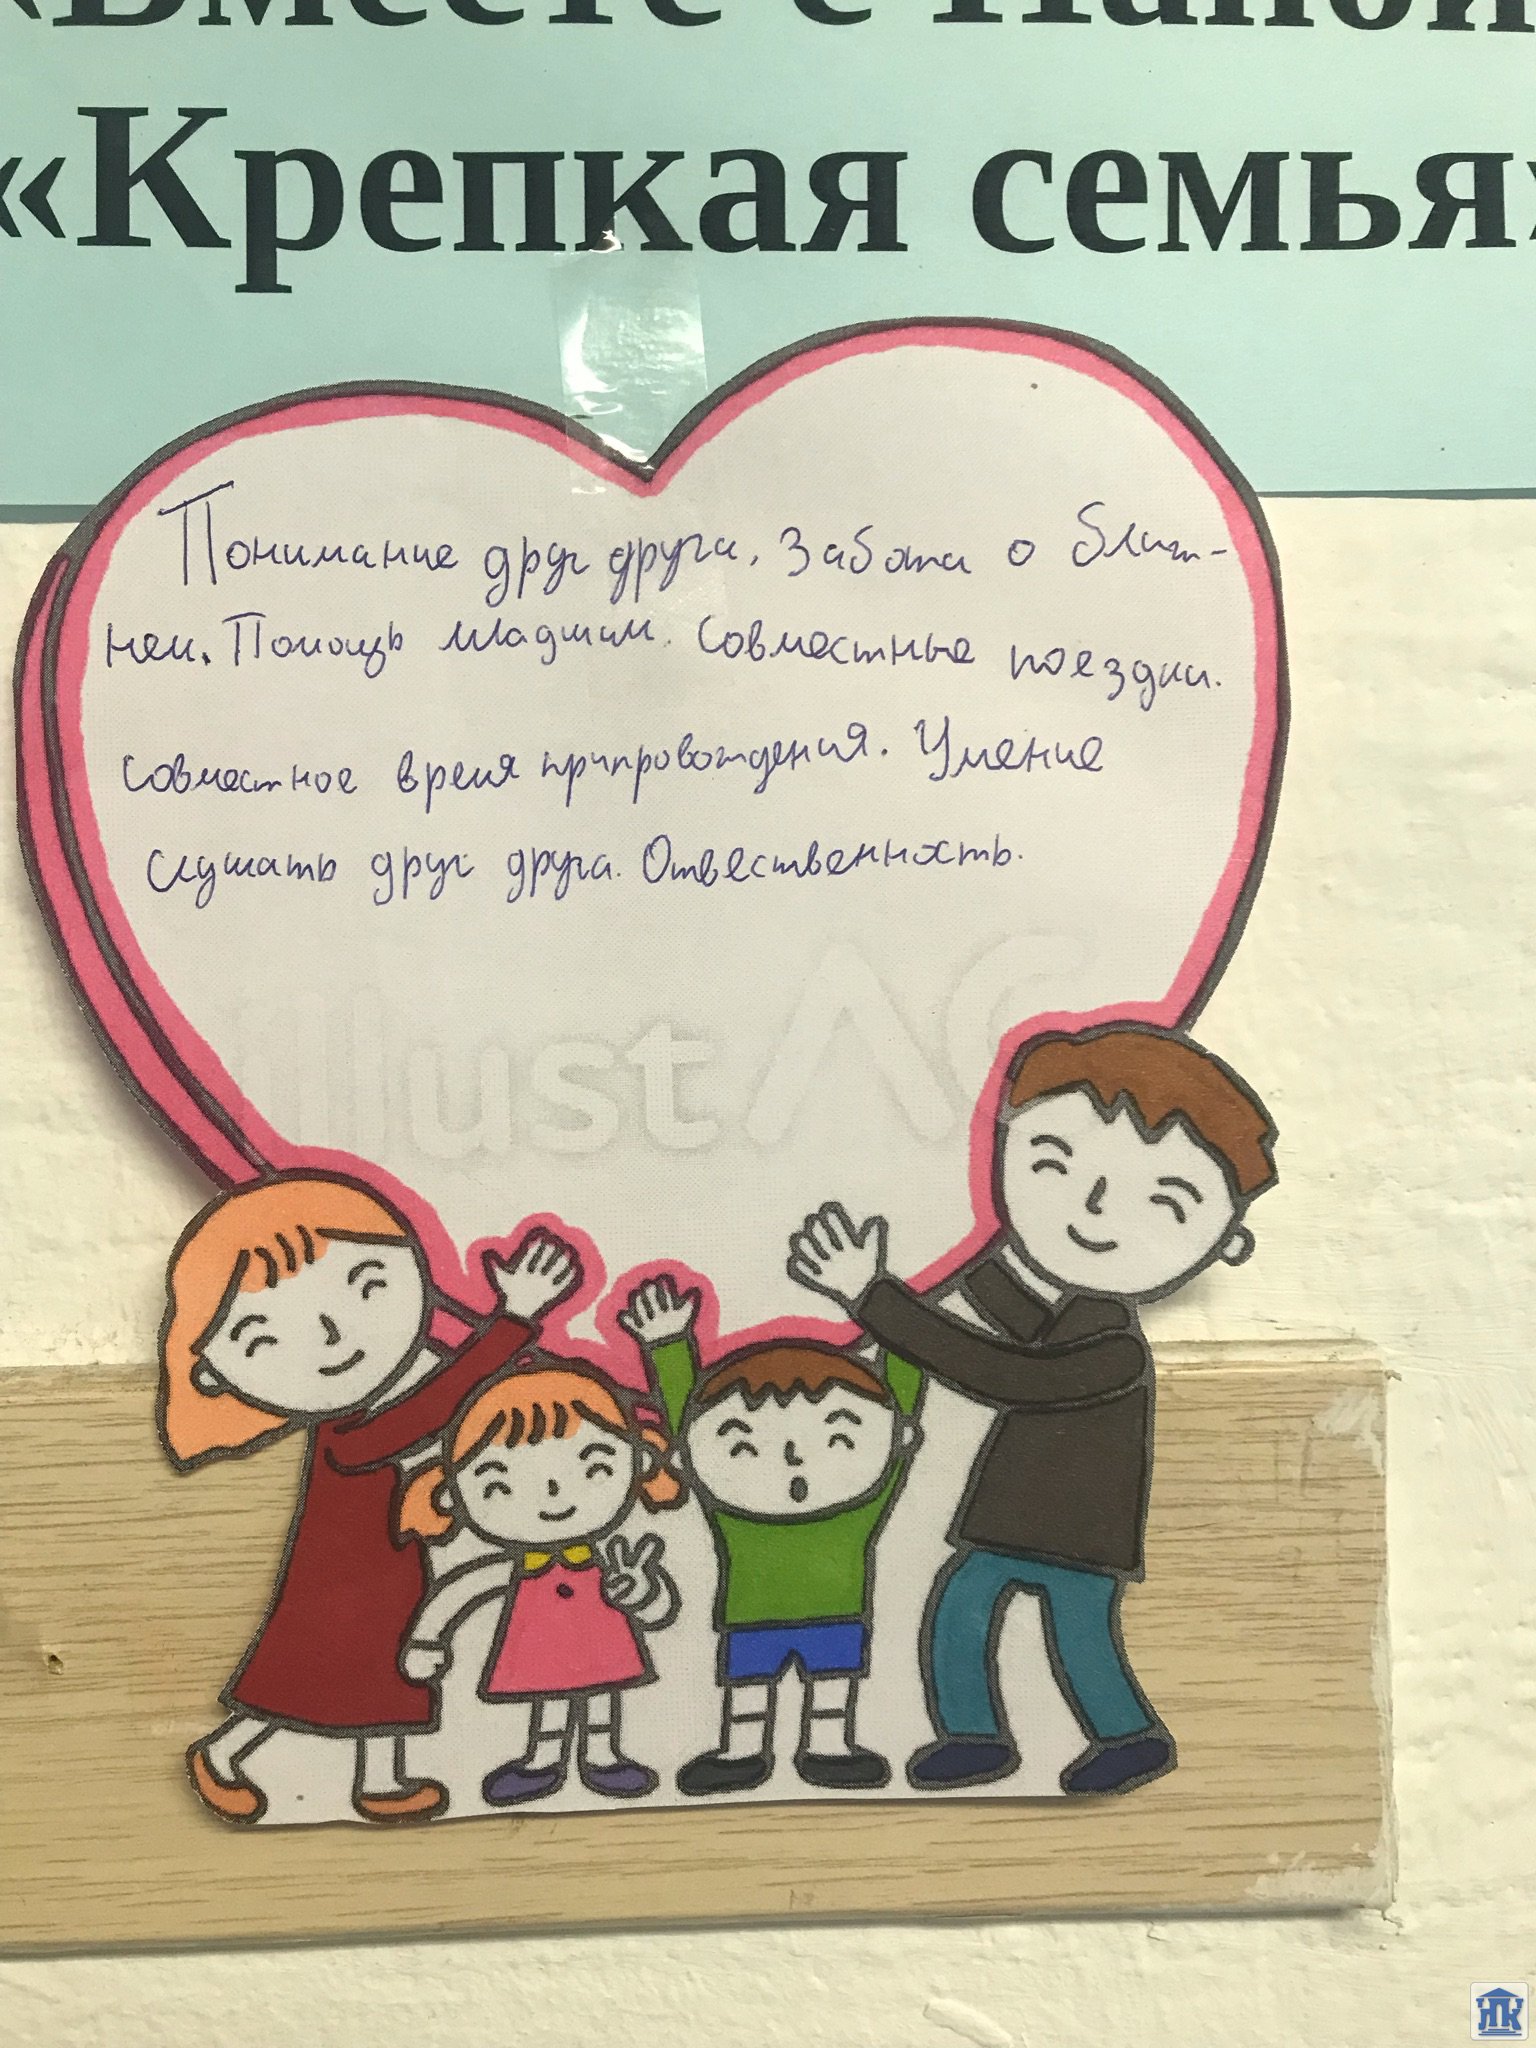 «Вместе с Папой»
«Крепкая семья»
Понимание друг друга, Забота о ближ-
нем. Помощь младшим. Совместные поездки.
Совместное время припровождения. Умение
слушать друг друга. Отвественность.
illust AC
ИК